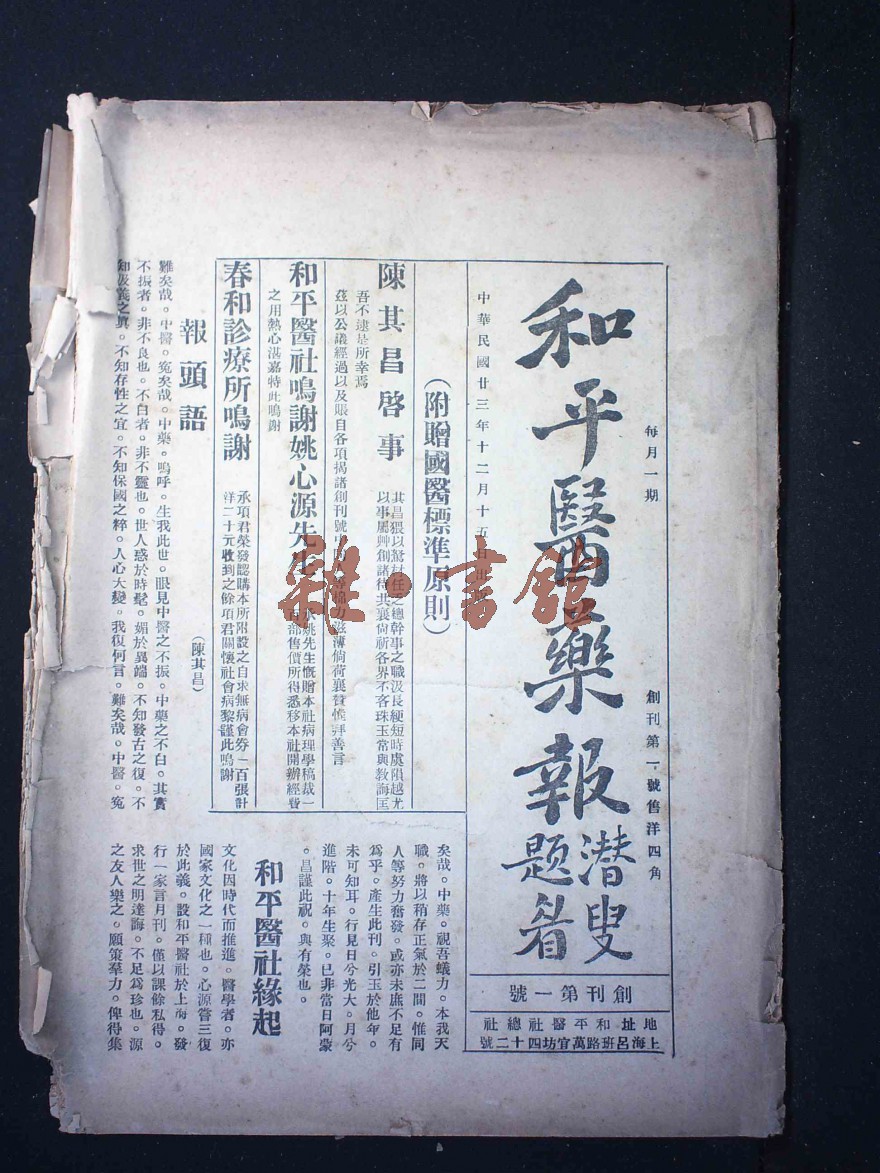 每月一期
創刊第一號售洋四角
和平醫藥報
潜叟
題耑
創刊第一號
地址和平醫社總社
上海呂班路萬宜坊四十二號
中華民國廿三年十二月十五日出版
（附贈國醫標準原則）
陳其昌啓事
其昌猥以駑材任乏總幹事之職汲長綆短時虞隕越尤
以事屬艸創諸待共襄尚祈各界不吝珠玉常與教誨匡
吾不逮是所幸焉
茲以公議經過以及賬目各項揭諸創刊號
棉力滋薄倘荷襄贊惟拜善言
和平醫社鳴謝姚心源先生
承姚先生慨贈本社病理學稿裁一
百部售價所得悉移本社開辦經費
之用熱心湛嘉特此鳴謝
春和診療所鳴謝
承項君榮發認購本所附設之自求無病會券一百張計
洋二十元收到之餘項君關懷社會病黎謹此鳴謝
報頭語
（陳其昌）
難矣哉。中醫。寃矣哉。中藥。嗚呼。生我此世。眼見中醫之不振。中藥之不白。其實
不振者。非不良也。不白者。非不靈也。世人惑於時髦。媚於異端。不知發古之復。不
知伋義之真。不知存性之宜。不知保國之粹。人心大變。我復何言。難矣哉。中醫。寃
矣哉。中藥。視吾蟻力。本我天
職。將以稍存正氣於二間。惟同
人等努力奮發。或亦未庶不足有
爲乎。產生此刊。引玉於他年。
未可知耳。行見日兮光大。月兮
進階。十年生聚。已非當日阿蒙
。昌謹此祝。與有榮也。
和平醫社緣起
文化因時代而推進。醫學者。亦
國家文化之一種也。心源嘗三復
於此義。設和平醫社於上海。發
行一家言月刊。僅以課餘私得。
求世之明達誨。不足爲珍也。源
之友人樂之。願策羣力。俾得集
雜·書館